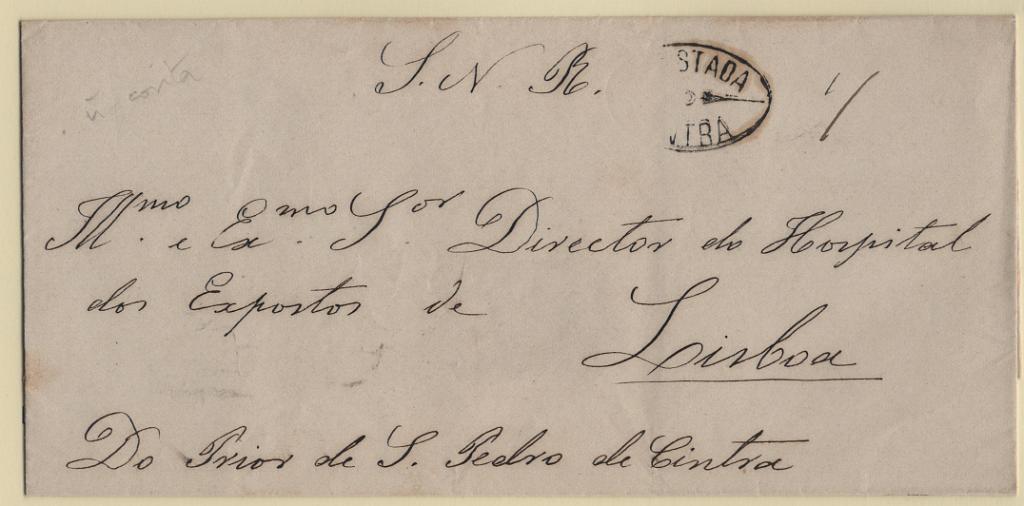 S. N. R.
STADA
NTRA
Illmo. e Exmo. Sor Director do Hospital
dos Expostos de
Lisboa
Do Prior de S. Pedro de Cintra